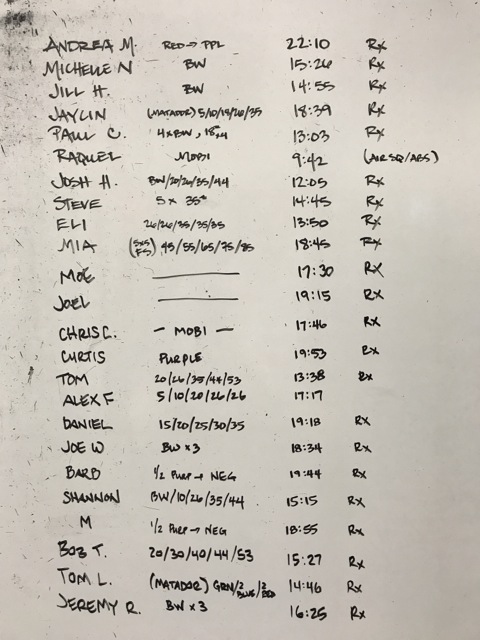 ANDREA M. RED → PPL 22:10 Rx
MICHELLE N BW 15:26 Rx
JILL H. BW 14:55 Rx
JAYLIN (MATADOR) 5/10/15/26/35 18:39 Rx
PAUL C. 4xBW, 18"x4 13:03 Rx
RAQUEL MOBI 9:42 (AIR SQ/ABS)
JOSH H. BW/20/26/35/44 12:05 Rx
STEVE 5 x 35# 14:45 Rx
ELI 26/26/35/35/35 13:50 Rx
MIA (5x5 FS) 45/55/65/75/85 18:45 Rx
MOE 17:30 Rx
JOEL 19:15 Rx
CHRIS C. — MOBI — 17:46 Rx
CURTIS PURPLE 19:53 Rx
TOM 20/26/35/44/53 13:38 Rx
ALEX F 5/10/20/26/26 17:17
DANIEL 15/20/25/30/35 19:18 Rx
JOE W BW x 3 18:34 Rx
BARB 1/2 PURP → NEG 19:44 Rx
SHANNON BW/10/26/35/44 15:15 Rx
M 1/2 PURP → NEG 18:55 Rx
BOB T. 20/30/40/44/53 15:27 Rx
TOM L. (MATADOR) GRN/2 BLUE/2 RED 14:46 Rx
JEREMY R. BW x 3 16:25 Rx